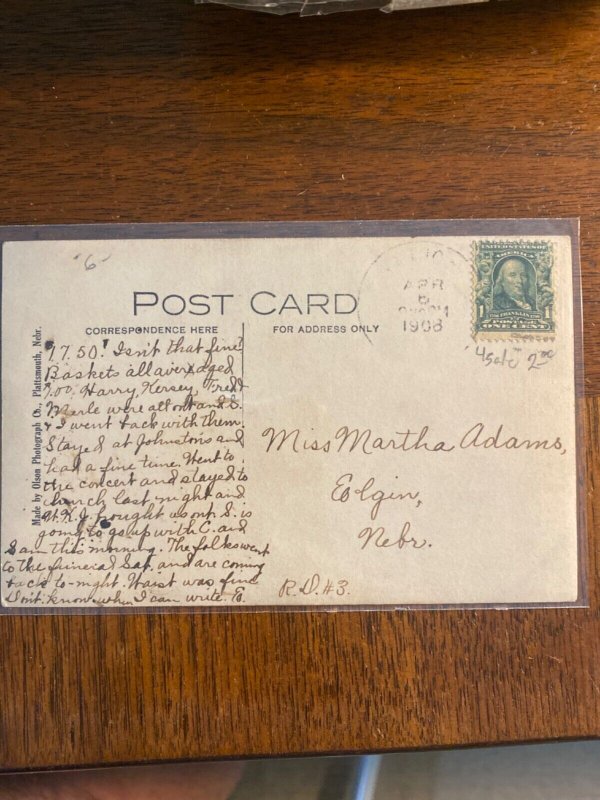 6
POST CARD
CORRESPONDENCE HERE
FOR ADDRESS ONLY
Made by Olson Photograph Co., Plattsmouth, Nebr.
APR
6
1908
UNITED STATES OF
AMERICA
1
1
FRANKLIN
POSTAGE
ONE CENT
2 00
77.50! Isn't that fine
Baskets all averaged
.700. Harry, Kersey, Fred
Merle were all out and C.
& I went back with them.
Stayed at Johnstons and
had a fine time. Went to
the concert and stayed to
lunch last night and
brought us out. I. is
going to go up with C. and
I am this morning. The folks went
to the funeral Sat. and are coming
back to-night. Waist was fine
Don't know when I can write. E.
Miss Martha Adams,
Elgin,
Nebr.
R.D.#3.